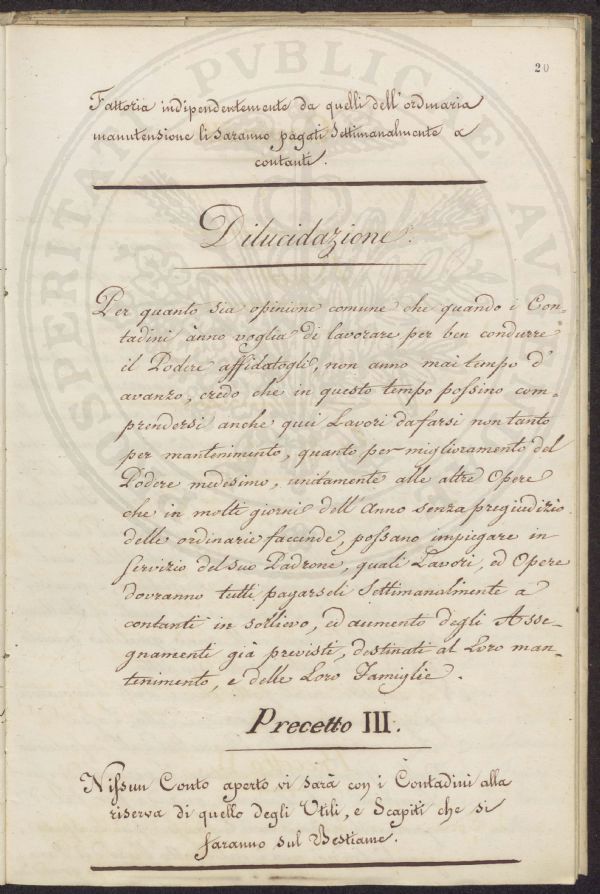 20
Fattoria indipendentemente da quelli dell'ordinaria
manutensione li saranno pagati Settimanalmente a
contanti.
Dilucidazione.
Per quanto sia opinione comune che quando i Con-
tadini ànno voglia di lavorare per ben condurre
il Podere affidatogli, non anno mai tempo d'
avanzo, credo che in questo tempo possino com-
prendersi anche quei Lavori da farsi non tanto
per mantenimento, quanto per miglioramento del
Podere medesimo, unitamente alle altre Opere
che in molti giorni dell'Anno senza pregiudizio
delle ordinarie faccende, possano impiegare in
servizio del suo Padrone, quali Lavori, ed Opere
dovranno tutti pagarseli Settimanalmente a
contanti in sollievo, ed aumento degli Asse-
gnamenti già previsti, destinati al Loro man-
tenimento, e delle Loro Famiglie.
Precetto III.
Nissun Conto aperto vi sarà con i Contadini alla
riserva di quello degli Utili, e Scapiti che si
faranno sul Bestiame.
PROSPERITATI PVBLICAE AVG